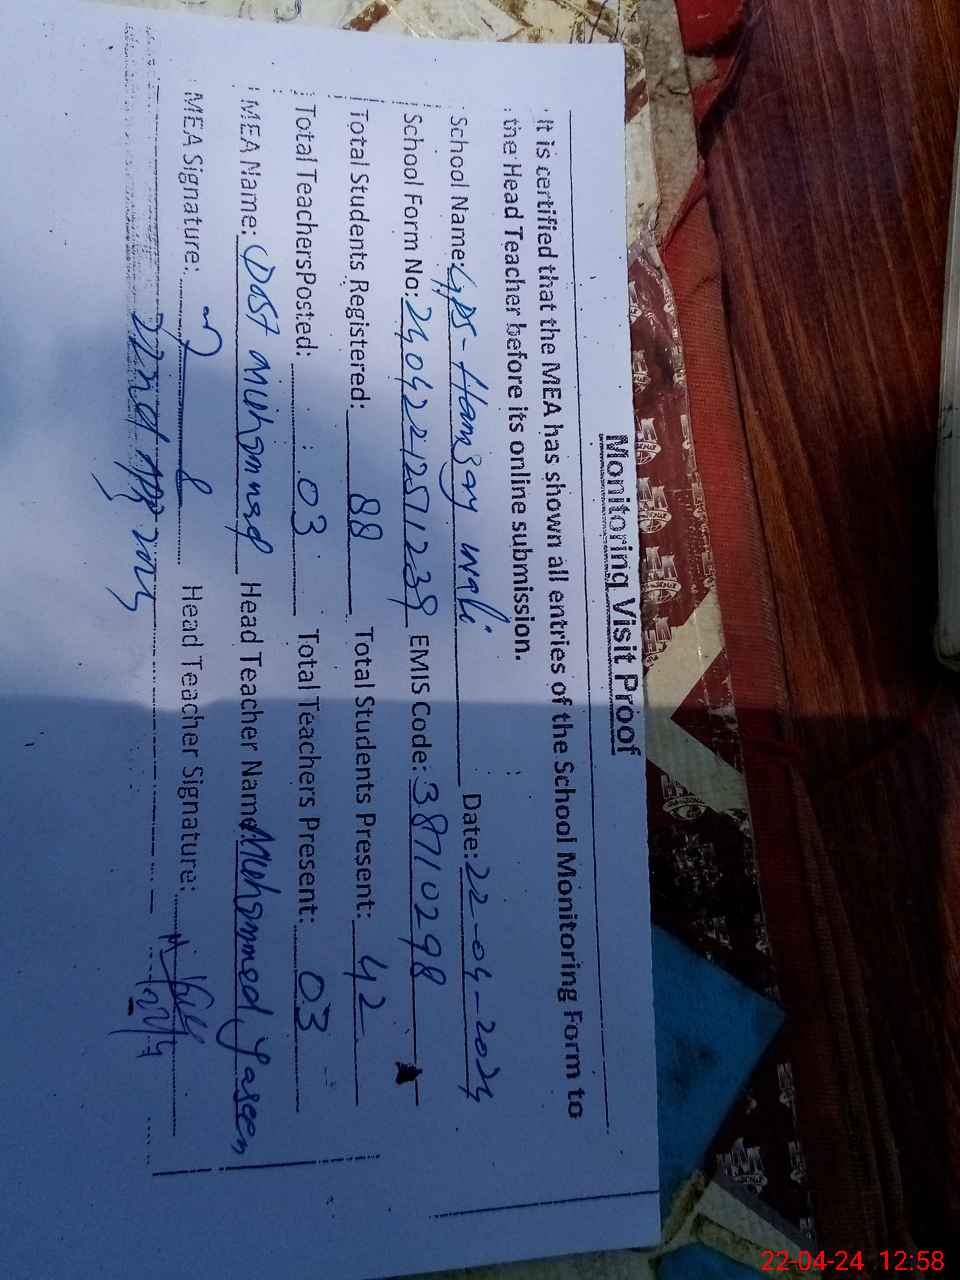 Monitoring Visit Proof
It is certified that the MEA has shown all entries of the School Monitoring Form to
the Head Teacher before its online submission.
School Name: GPS-Hamzay wali Date: 22-04-2024
School Form No: 24042212571239 EMIS Code: 38710298
Total Students Registered: 88 Total Students Present: 42
Total TeachersPosted: 03 Total Teachers Present: 03
MEA Name: Dost Muhammad Head Teacher Name: Muhammed Yaseen
MEA Signature: Head Teacher Signature:
22-04-24 12:58